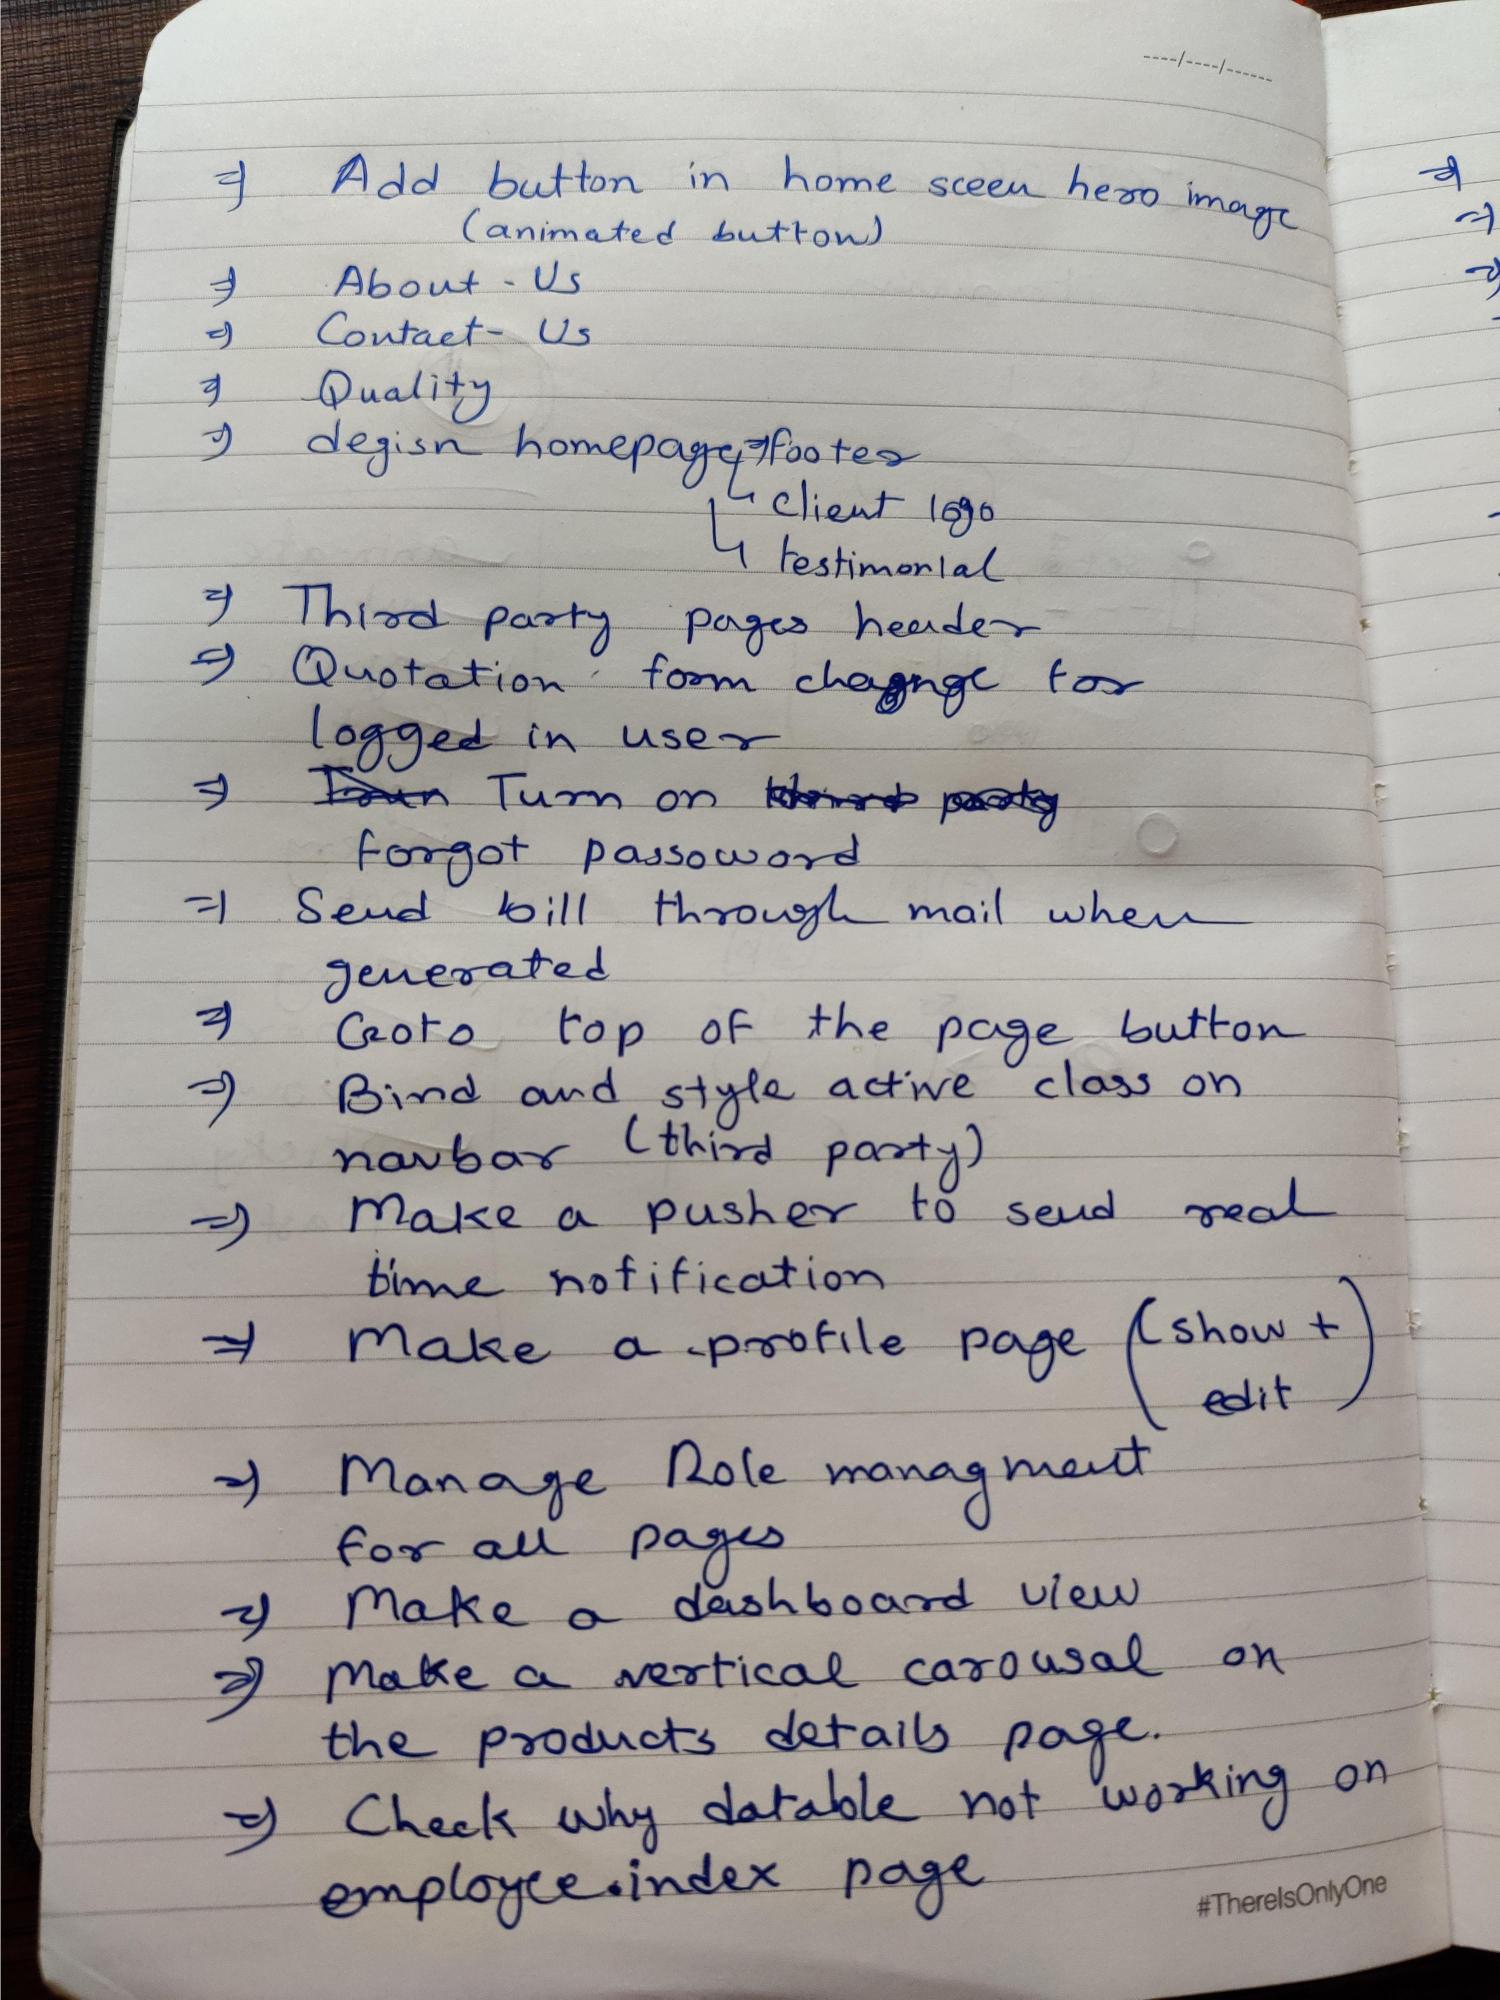 ----/----/------
⇒ Add button in home sceen hero image
(animated button)
⇒ About - Us
⇒ Contact- Us
⇒ Quality
⇒ degisn homepage ⇒ footer
↳ client logo
↳ testimonial
⇒ Third party pages header
⇒ Quotation form change for
logged in user
⇒ Turn on
forgot passoword
⇒ Send bill through mail when
generated
⇒ Goto top of the page button
⇒ Bind and style active class on
navbar (third party)
⇒ Make a pusher to send real
time notification
⇒ Make a profile page (show +
edit)
⇒ Manage Role managment
for all pages
⇒ Make a dashboard view
⇒ Make a vertical carousal on
the products details page.
⇒ Check why datable not working on
employee.index page
#ThereIsOnlyOne